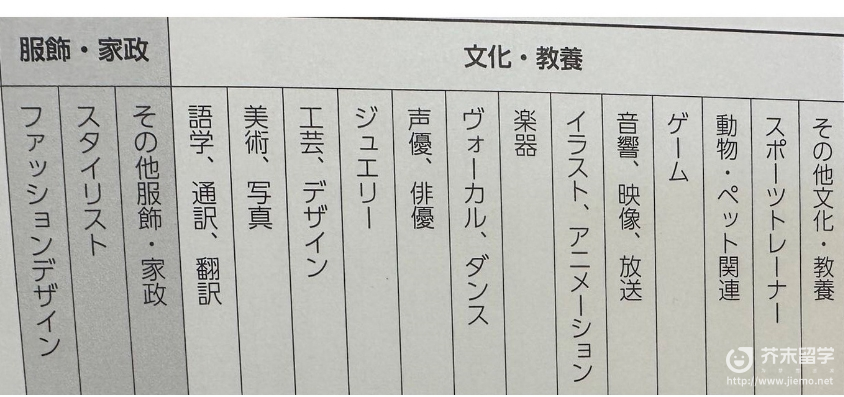 服飾・家政
文化・教養
ファッションデザイン
スタイリスト
その他服飾・家政
語学、通訳、翻訳
美術、写真
工芸、デザイン
ジュエリー
声優、俳優
ヴォーカル、ダンス
楽器
イラスト、アニメーション
音響、映像、放送
ゲーム
動物・ペット関連
スポーツトレーナー
その他文化・教養
芥末留学
http://www.jiemo.net/